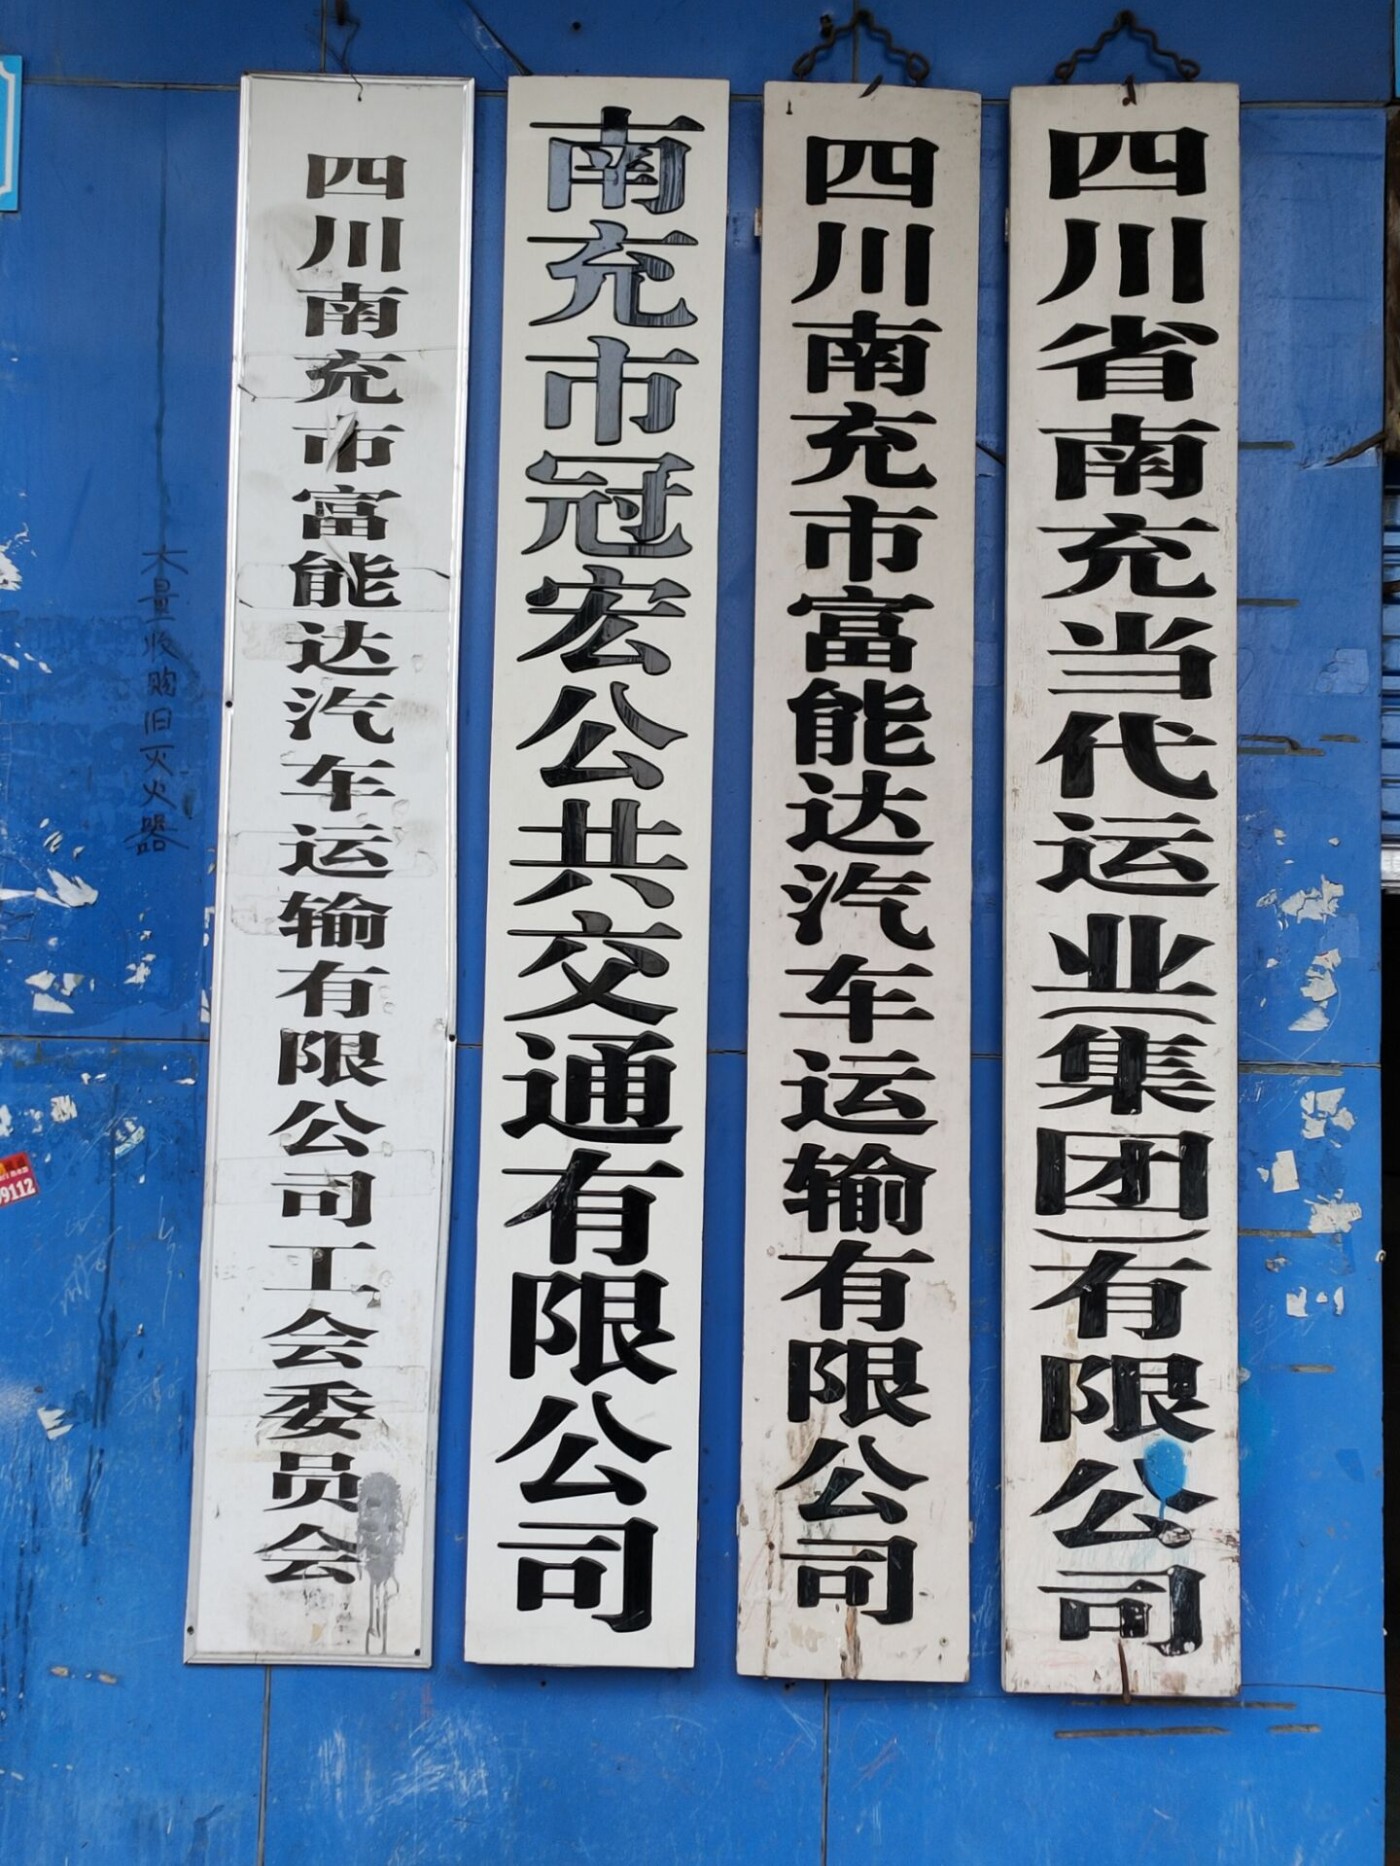 四川省南充当代运业(集团)有限公司
四川南充市富能达汽车运输有限公司
南充市冠宏公共交通有限公司
四川南充市富能达汽车运输有限公司工会委员会
大量收购旧灭火器
09112